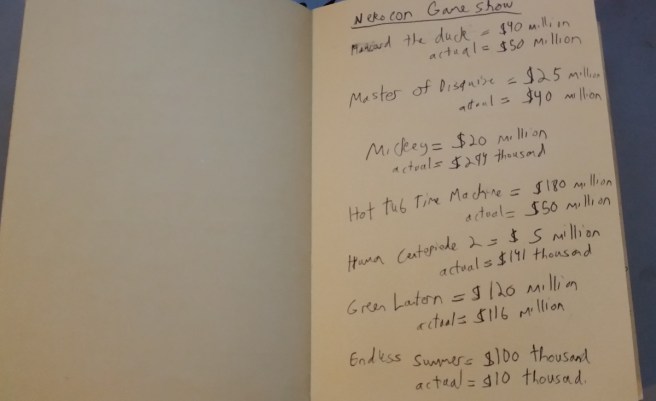 Nekocon Game show
the duck = $40 million
actual = $50 million
Master of Disguise = $25 million
actual = $40 million
Mickey = $20 million
actual = $294 thousand
Hot tub Time Machine = $180 million
actual = $50 million
Human Centepiode 2 = $5 million
actual = $141 thousand
Green Latorn = $120 million
actual = $116 million
Endless Summer = $100 thousand
actual = $10 thousand.